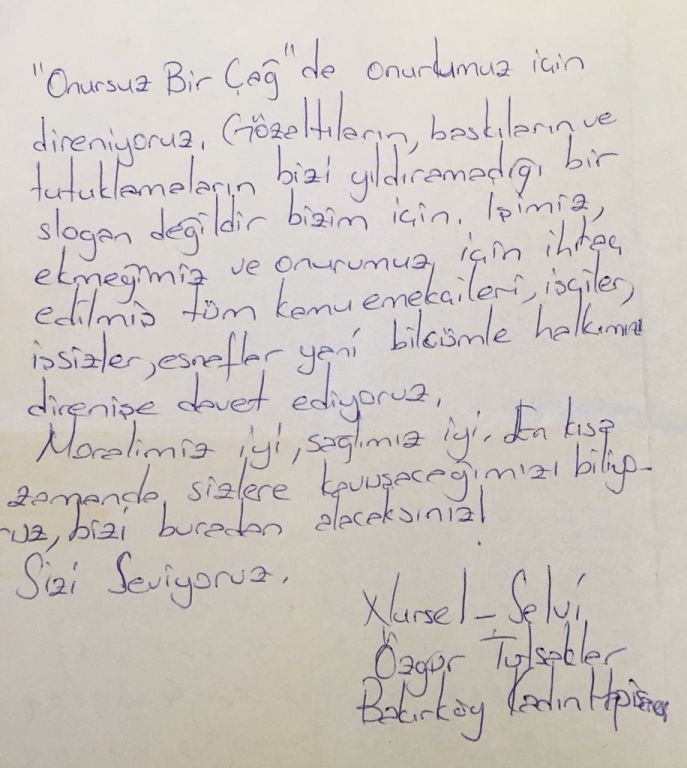 "Onursuz Bir Çağ"de onurumuz için
direniyoruz. Gözaltıların, baskıların ve
tutuklamaların bizi yıldıramadığı bir
slogan değildir bizim için. İşimiz,
ekmeğimiz ve onurumuz için ihraç
edilmiş tüm kamu emekçileri, işçiler,
işsizler, esnaflar yani bilcümle halkımızı
direnişe davet ediyoruz.
Moralimiz iyi, sağlımız iyi. En kısa
zamanda sizlere kavuşacağımızı biliyo-
ruz, bizi buradan alacaksınız!
Sizi Seviyoruz.
Nursel - Selvi
Özgür Tutsaklar
Bakırköy Kadın Hapishanesi